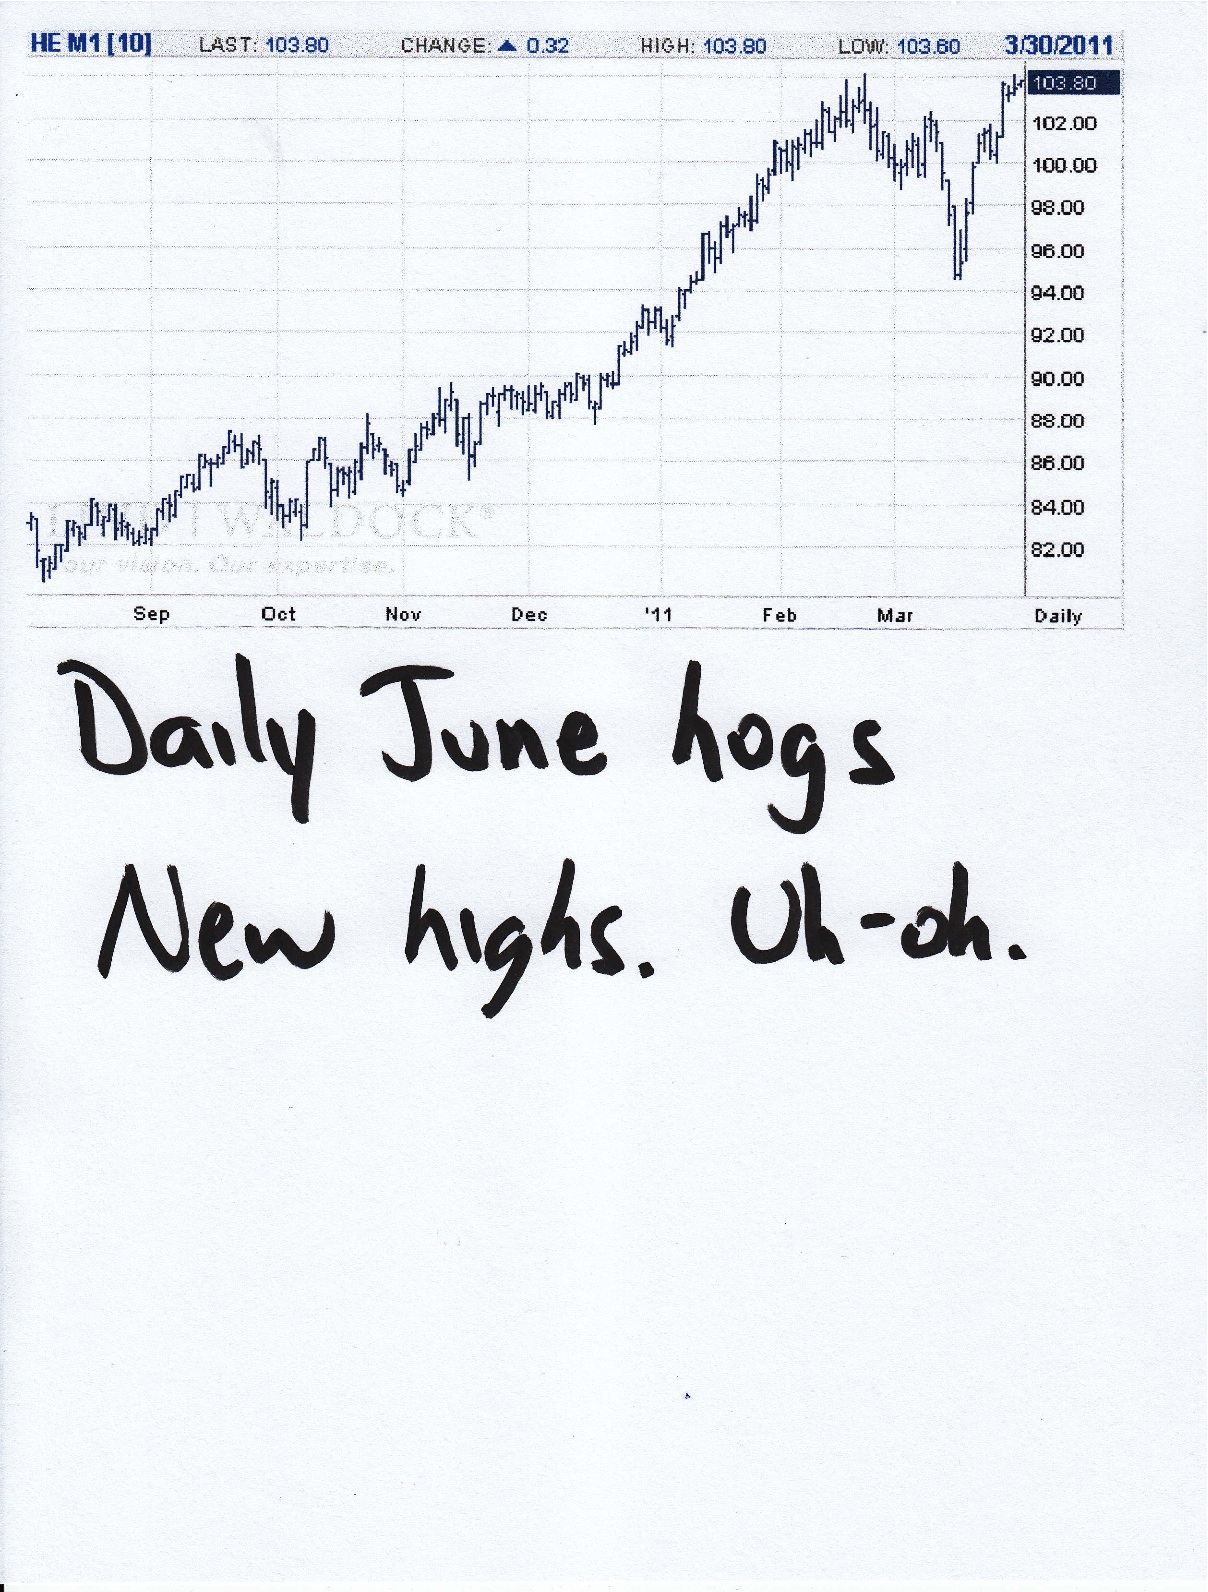 HE M1 [10] LAST: 103.80 CHANGE: ▲ 0.32 HIGH: 103.80 LOW: 103.60 3/30/2011
103.80
102.00
100.00
98.00
96.00
94.00
92.00
90.00
88.00
86.00
84.00
82.00
WALDOCK
Your vision. Our expertise.
Sep Oct Nov Dec '11 Feb Mar Daily
Daily June hogs
New highs. Uh-oh.